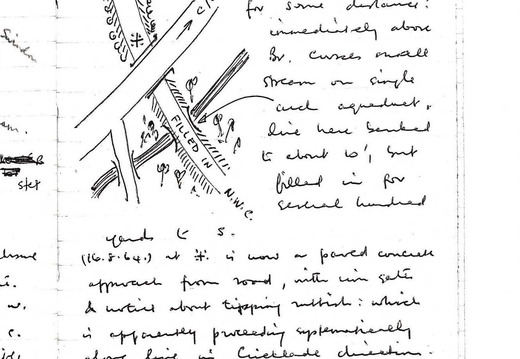 for some distance:
immediately above
Br. crosses small
stream on single
arch aqueduct.
Line here banked
to about 10', but
filled in for
several hundred
yards to S.
(16.8.64.) at #. is now a paved concrete
approach from road, with iron gates
& notice about tipping rubbish: which
is apparently proceeding systematically
along line in Cricklade direction.
FILLED IN
N.W.C.
C
#
stet